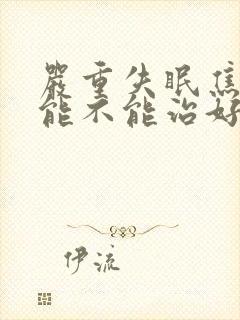 嚴重失眠焦
能不能治好
伊流